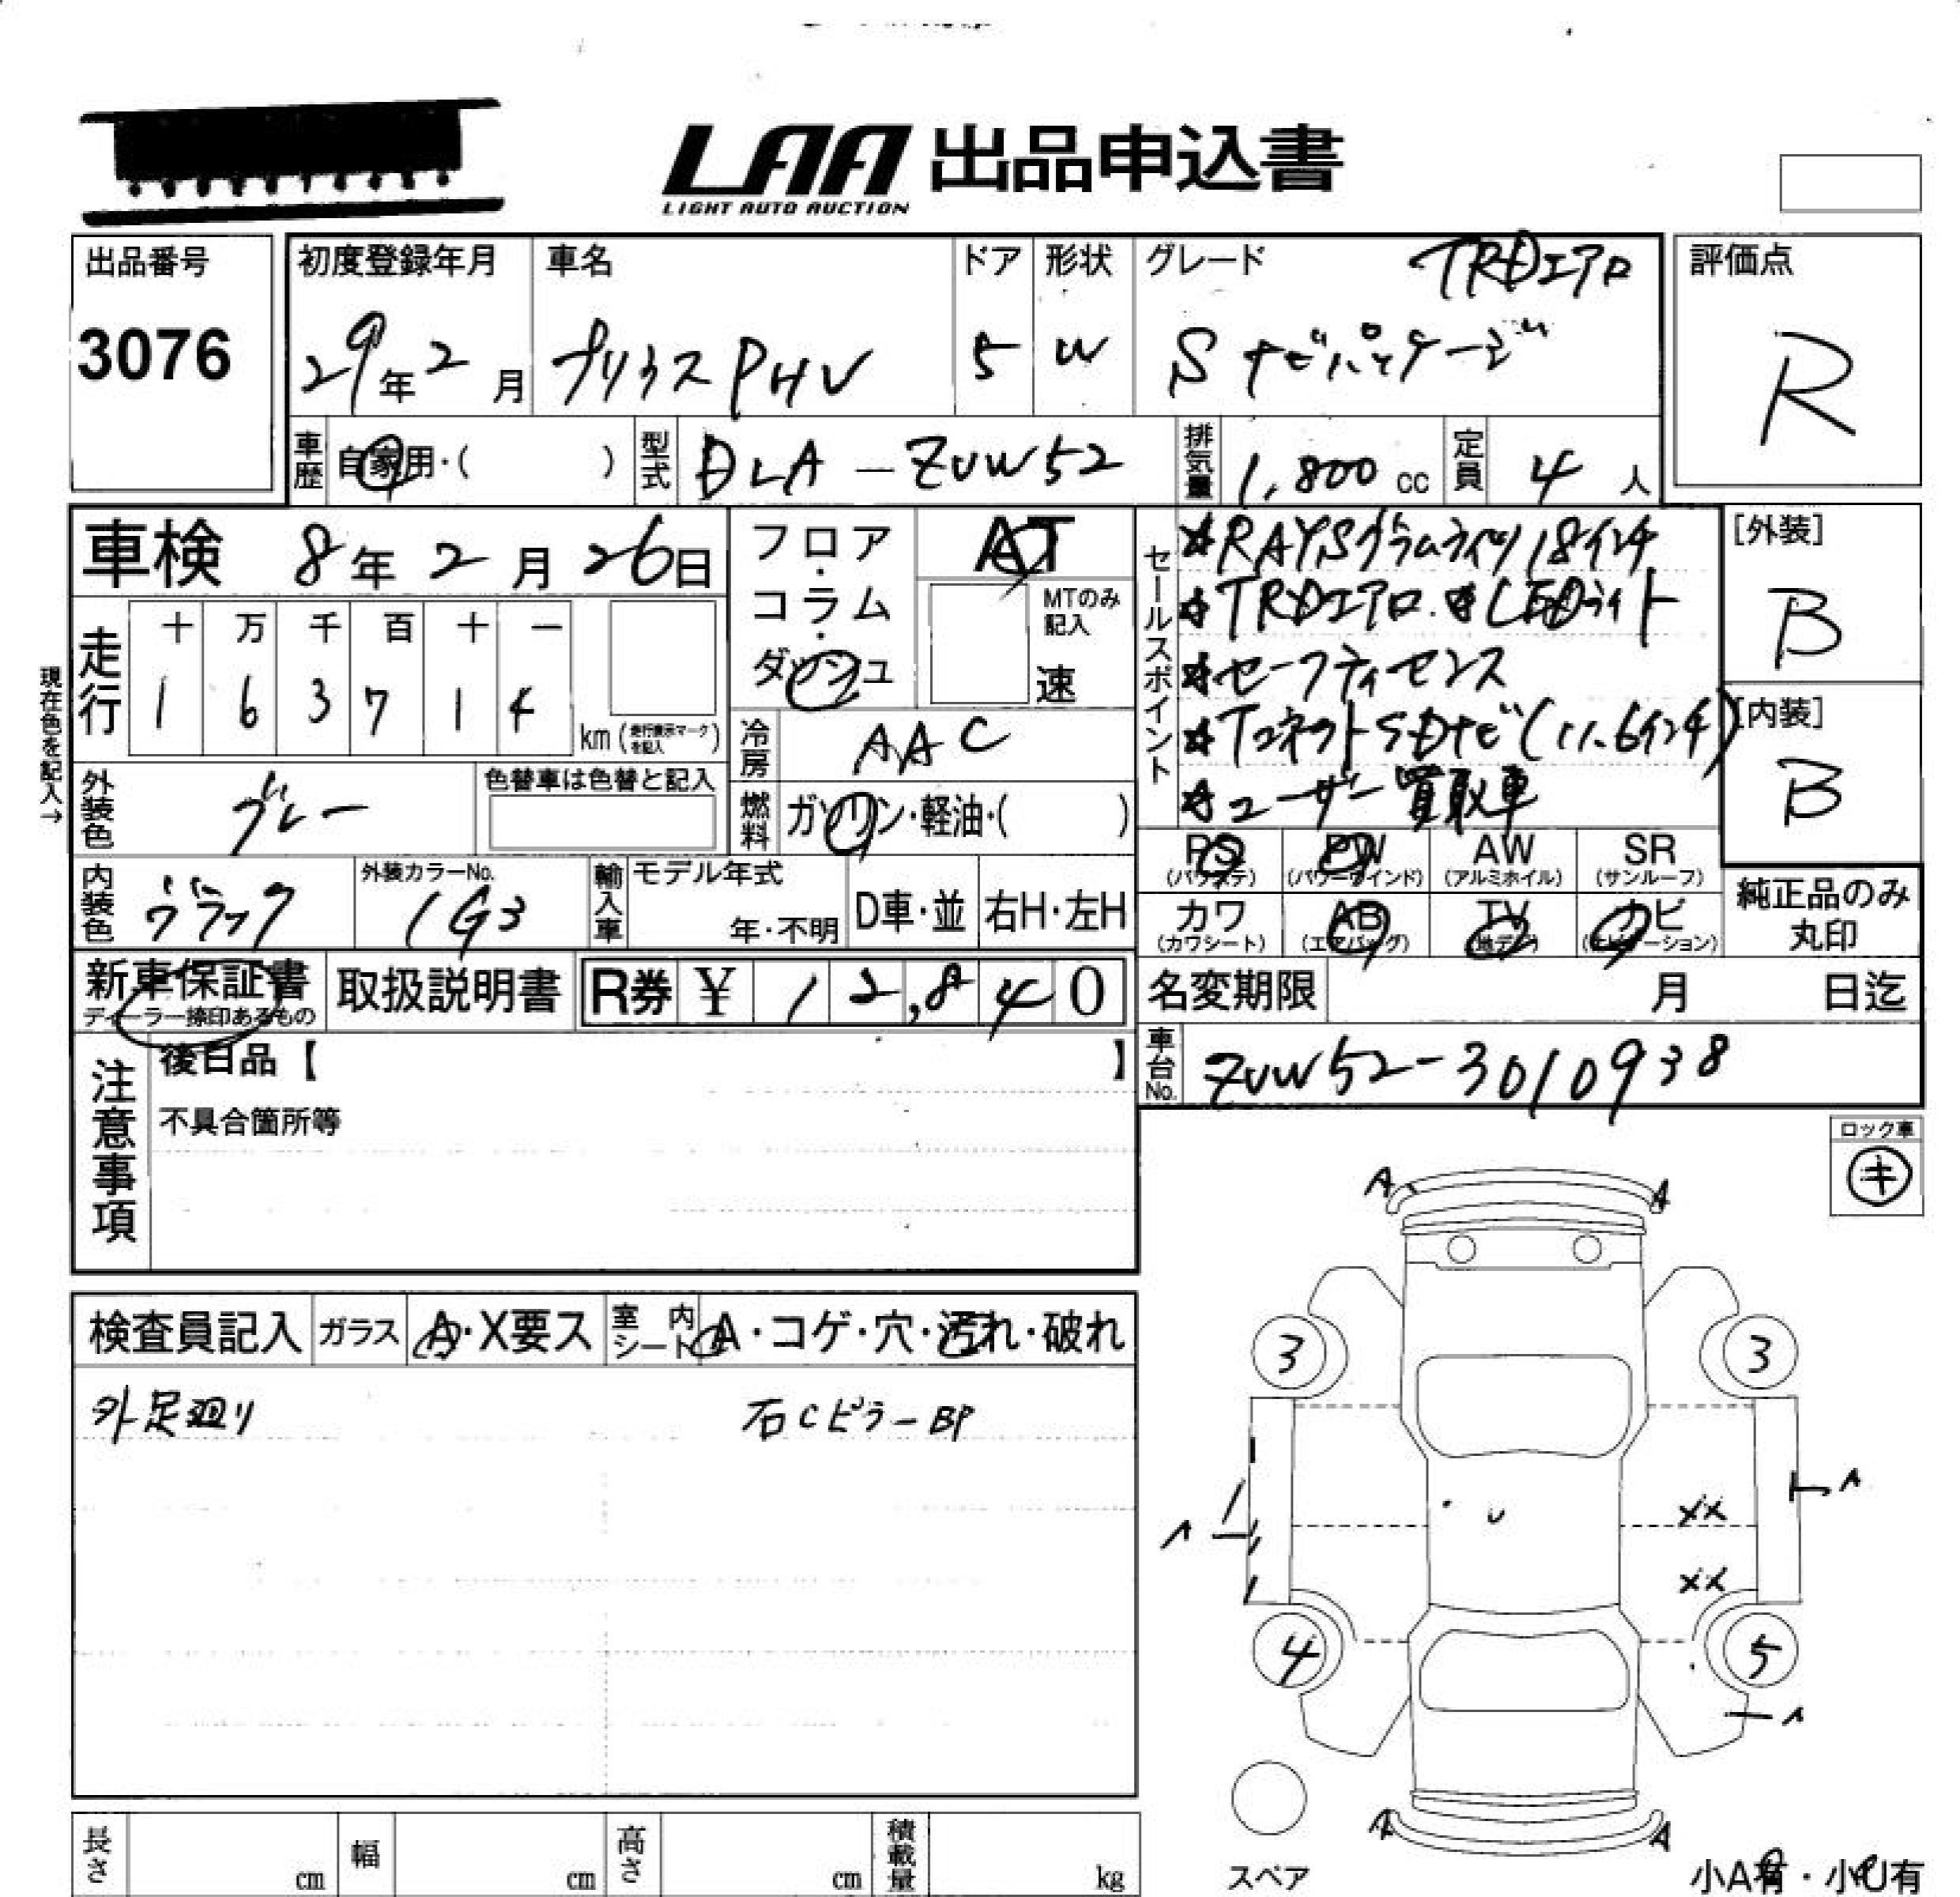 LAA 出品申込書
LIGHT AUTO AUCTION
出品番号
3076
初度登録年月
29年2月
車名
プリウスPHV
ドア
5
形状
W
グレード
TRDエアロ
S ナビパッケージ
評価点
R
車歴 自家用・( )
型式 DLA-ZVW52
排気量 1,800 cc
定員 4 人
車検 8年2月26日
フロア・コラム・ダッシュ
AT
MTのみ記入
速
セールスポイント
☆RAYSグラムライツ18インチ
☆TRDエアロ.☆LEDライト
☆セーフティセンス
☆TコネクトSDナビ(11.6インチ)
☆ユーザー買取車
[外装]
B
[内装]
B
現在色を記入→
走行
十 万 千 百 十 一
1 6 3 7 1 4
km (走行表示マークを記入)
冷房 AAC
外装色 グレー
色替車は色替と記入
燃料 ガソリン・軽油・( )
PS (パワステ)
PW (パワーウインド)
AW (アルミホイル)
SR (サンルーフ)
カワ (カワシート)
AB (エアバッグ)
TV (地デジ)
ナビ (ナビゲーション)
純正品のみ丸印
内装色 ブラック
外装カラーNo. 1G3
輸入車 モデル年式 年・不明
D車・並 右H・左H
新車保証書
ディーラー捺印あるもの
取扱説明書
R券 ¥ 12,840
名変期限 月 日迄
車台No. ZVW52-3010938
注意事項
後日品【 】
不具合箇所等
ロック車
キ
検査員記入
ガラス A・X要ス
室内シート A・コゲ・穴・汚れ・破れ
外足廻り
右CピラーBP
A A
3 3
A
A
XX
U
XX
4 5
A
A A
スペア
小A有・小U有
長さ cm
幅 cm
高さ cm
積載量 kg